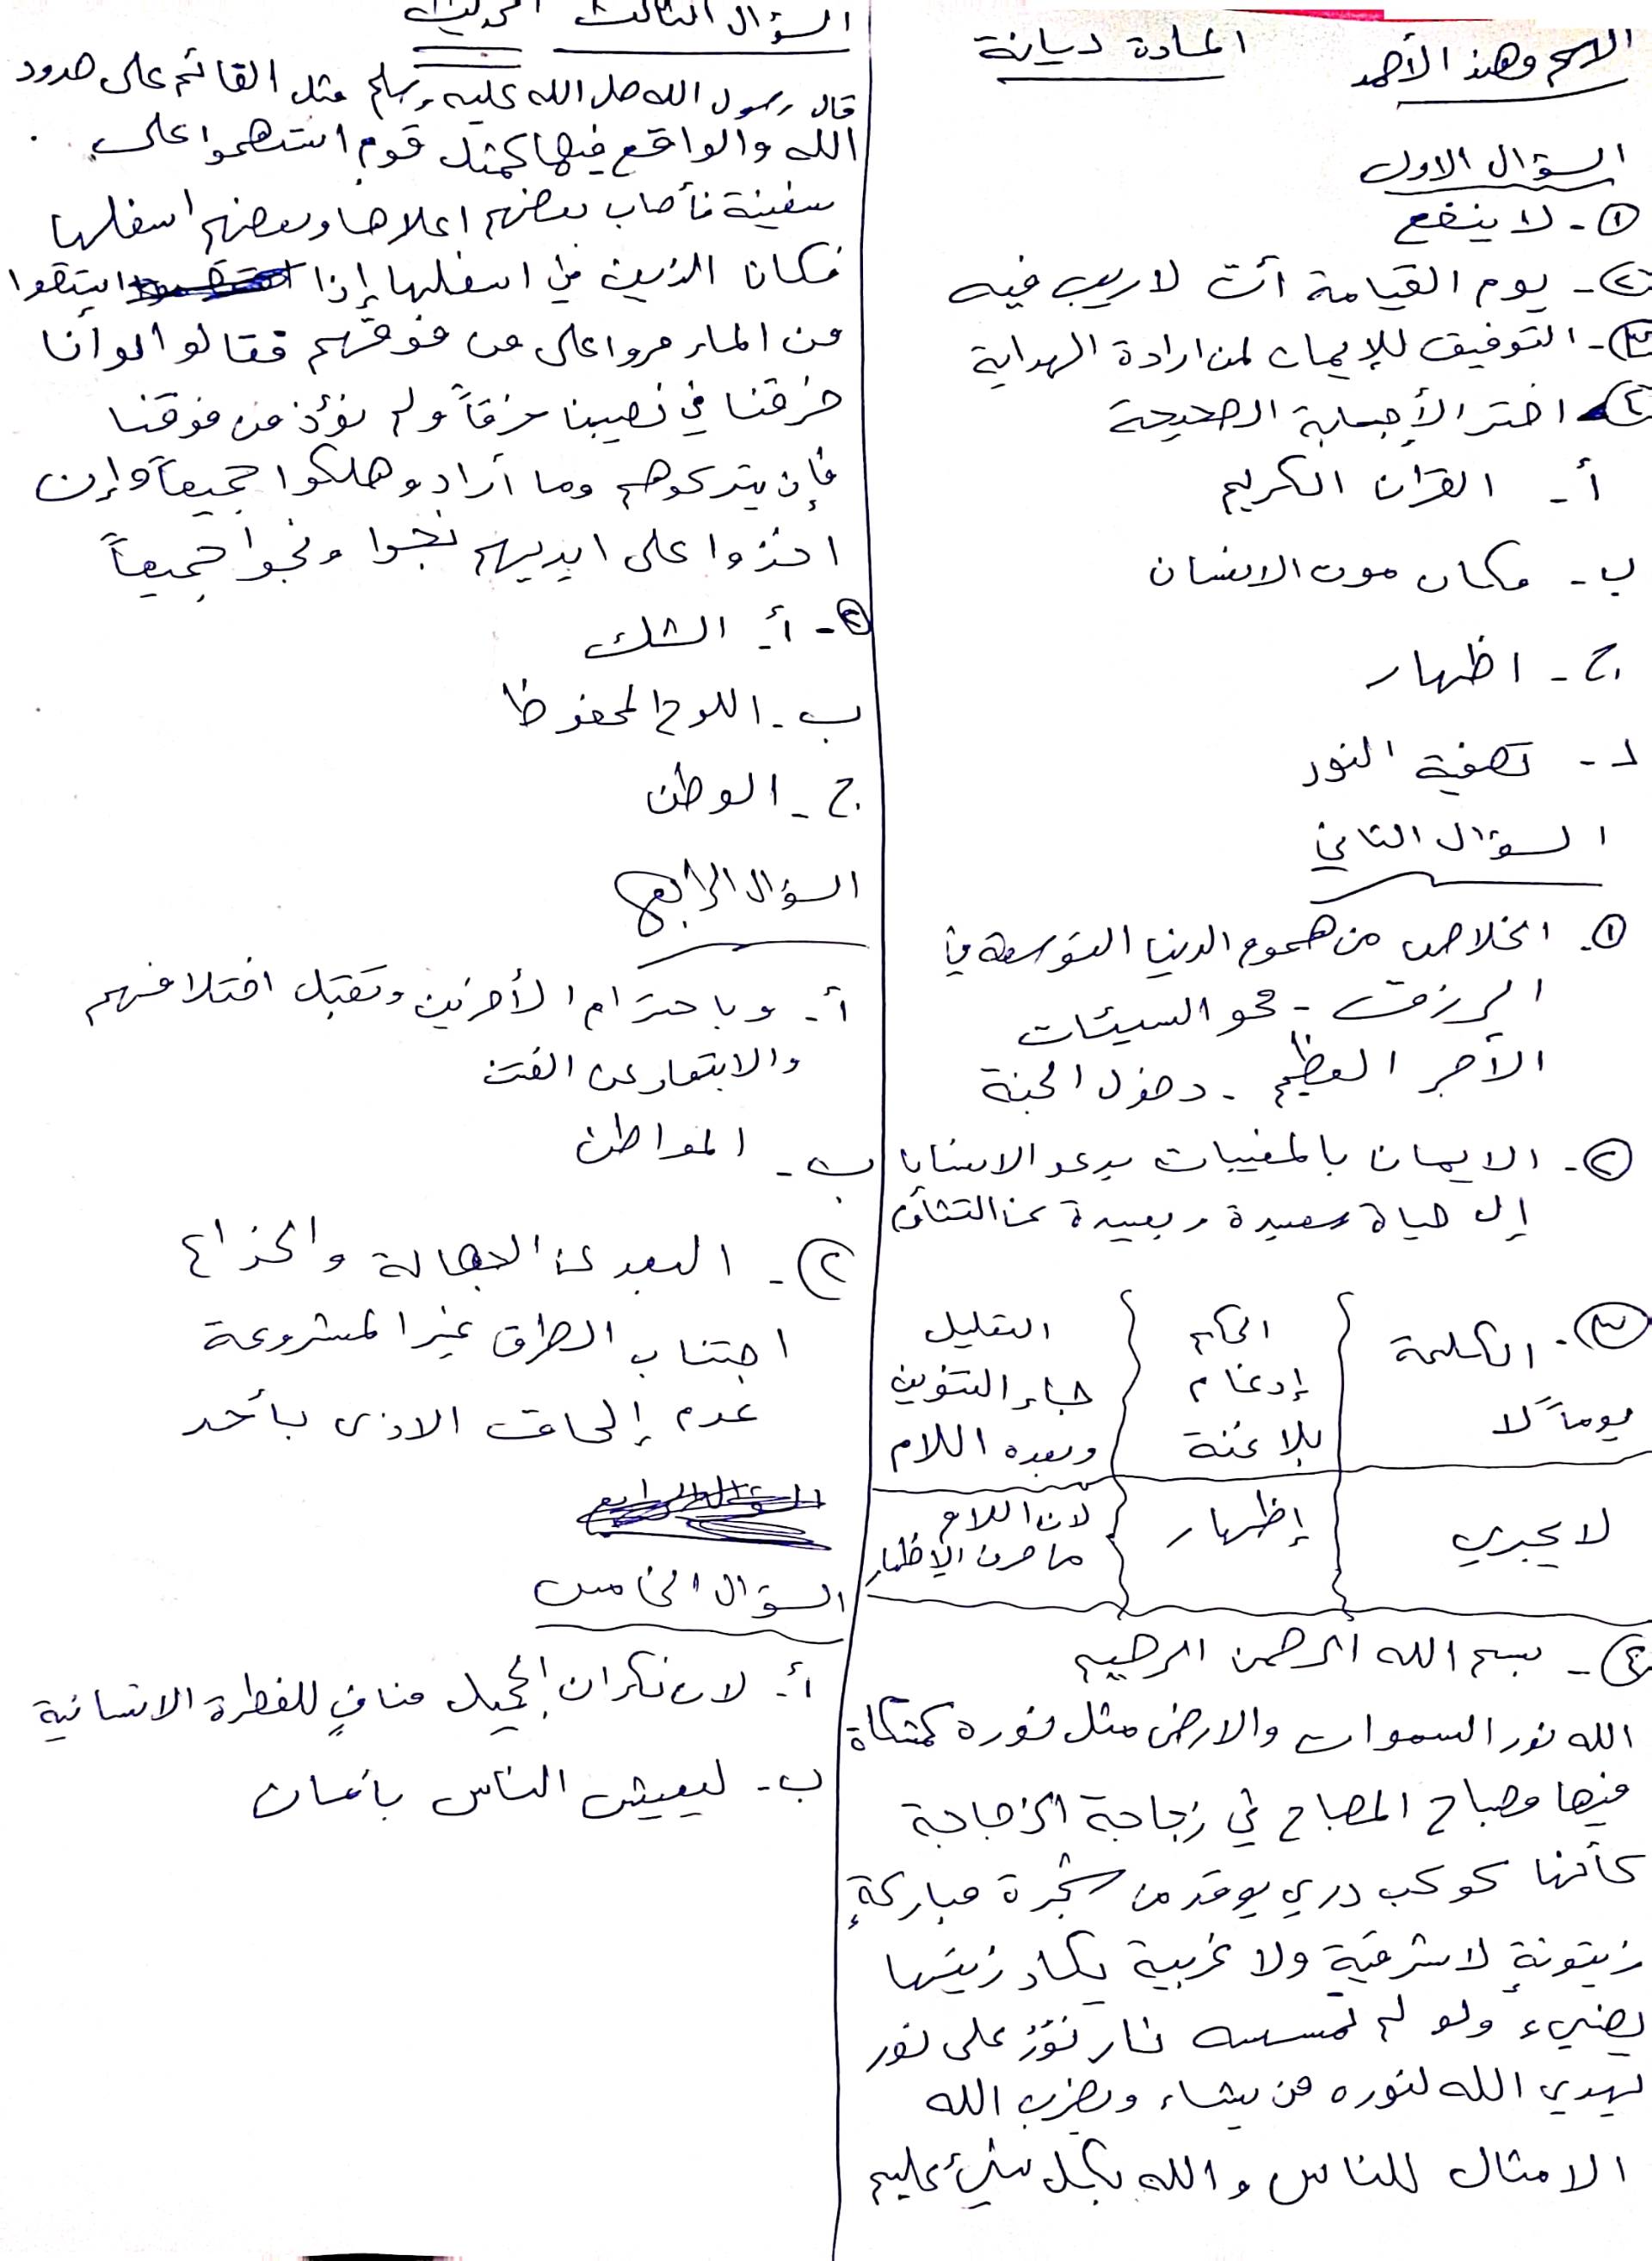 الاسم وهند الأحمد
المادة ديانة
السؤال الاول
١- لا ينفع
٢- يوم القيامة آت لا ريب فيه
٣- التوفيق للإيمان لمن ارادة الهداية
٤ اختر الأجابة الصحيحة
أ- القران الكريم
ب- مكان موت الانسان
ج- اظهار
د- تصفية النور
السؤال الثاني
١- الخلاص من هموم الدنيا التوسعة في
الرزق - محو السيئات
الأجر العظيم - دخول الجنة
٢- الايمان بالمغيبات يدعو الانسان
إلى حياة سعيدة وبعيدة عن التشاؤم
٣- الكلمة الحكم التعليل
يوماً لا إدغام بلا غنة جاء التنوين وبعده اللام
لا يجري إظهار لان اللام من حرف الإظهار
٤- بسم الله الرحمن الرحيم
الله نور السموات والارض مثل نوره كمشكاة
فيها مصباح المصباح في زجاجة الزجاجة
كأنها كوكب دري يوقد من شجرة مباركةٍ
زيتونةٍ لا شرقية ولا غربية يكاد زيتها
يضيء ولو لم تمسسه نار نورٌ على نور
يهدي الله لنوره من يشاء ويضرب الله
الامثال للناس والله بكل شيءٍ عليم
السؤال الثالث الحديث
قال رسول الله صل الله عليه وسلم مثل القائم على حدود
الله والواقع فيها كمثل قوم استهموا على
سفينة فأصاب بعضهم اعلاها وبعضهم اسفلها
فكان الذين في اسفلها إذا استقوا
من الماء مروا على من فوقهم فقالوا لو أنا
خرقنا في نصيبنا خرقاً ولم نؤذ من فوقنا
فإن يتركوهم وما أرادو هلكوا جميعاً وإن
اخذوا على ايديهم نجوا ونجوا جميعاً
٢- أ- الشك
ب- اللوح المحفوظ
ج- الوطن
السؤال الرابع
أ- وباحترام الأخرين وتقبل اختلافهم
والابتعاد عن الفتن
ب- المواطن
٢- البعد عن الجهالة والخداع
اجتناب الطرق غير المشروعة
عدم إلحاق الاذى بأحد
السؤال الخامس
أ- لان نكران الجميل منافٍ للفطرة الانسانية
ب- ليعيش الناس بأمان